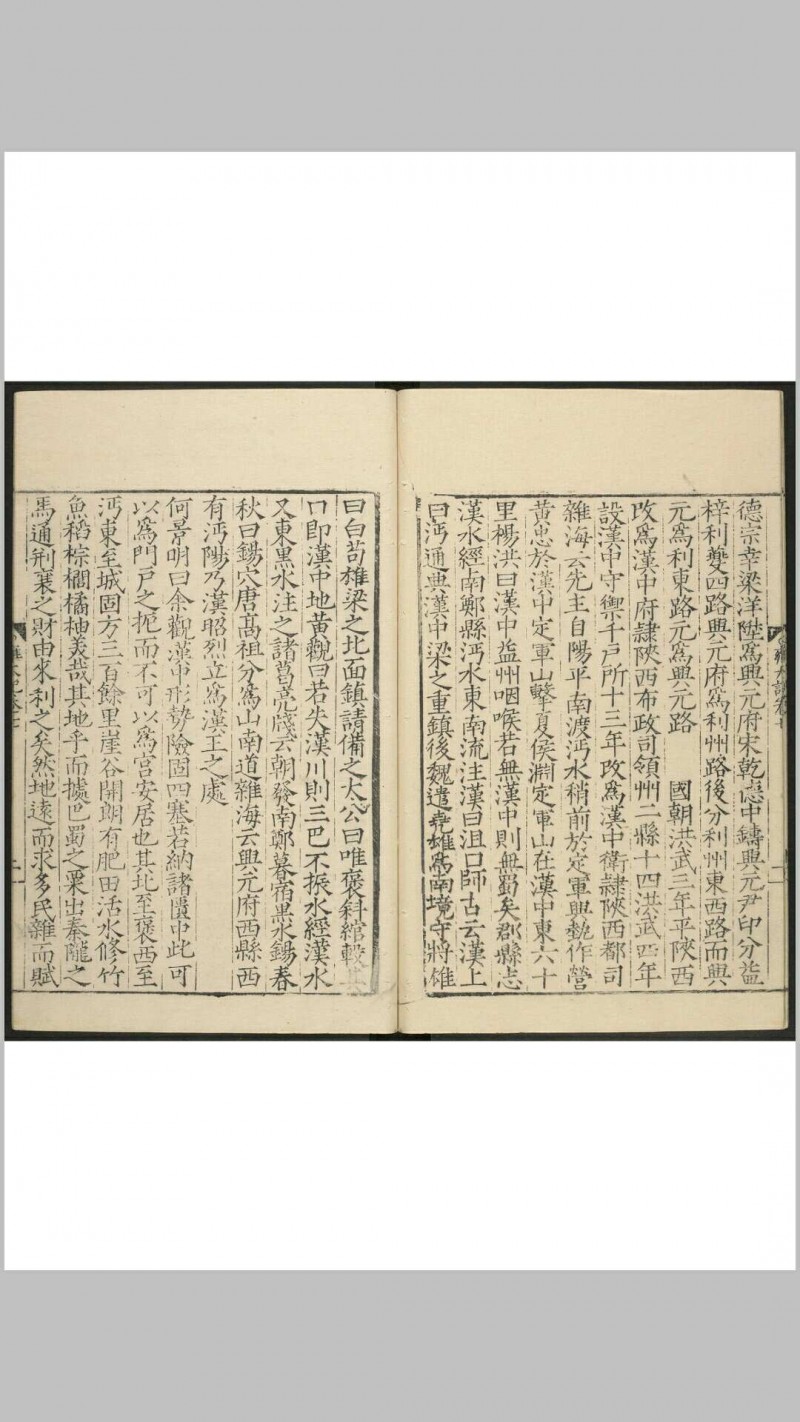 德宗幸梁洋陞爲興元府宋乾德中鑄興元尹印分益
梓利夔四路興元府爲利州路後分利州東西路而興
元爲利東路元爲興元路　　國朝洪武三年平陝西
改爲漢中府隸陝西布政司領州二縣十四洪武四年
設漢中守禦千戸所十三年改爲漢中衛隸陝西都司
雍海云先主自陽平南渡沔水稍前於定軍興勢作營
黄忠於漢中定軍山擊夏侯淵定軍山在漢中東六十
里楊洪曰漢中益州咽喉若無漢中則無蜀矣郡縣志
漢水經南鄭縣沔水東南流注漢曰沮口師古云漢上
曰沔通典漢中梁之重鎮後魏遣堯雄爲南境守將雄
曰白苟堆梁之北面鎮請備之太公曰唯褒斜綰轂
口即漢中地黄觀曰若失漢川則三巴不振水經漢水
又東黒水注之諸葛亮牋云朝發南鄭暮宿黒水鍚春
秋曰鍚穴唐髙祖分爲山南道雍海云興元府西縣西
有沔陽乃漢昭烈立爲漢王之處
何景明曰余觀漢中形勢險固四塞若納諸匱中此可
以爲門戸之扼而不可以爲宮安居也其北至褒西至
沔東至城固方三百餘里崖谷開朗有肥田活水修竹
魚稻棕櫚橘柚美哉其地乎而據巴蜀之粟出秦隴之
馬通荆襄之財由來利之矣然地遠而求多民雜而賦